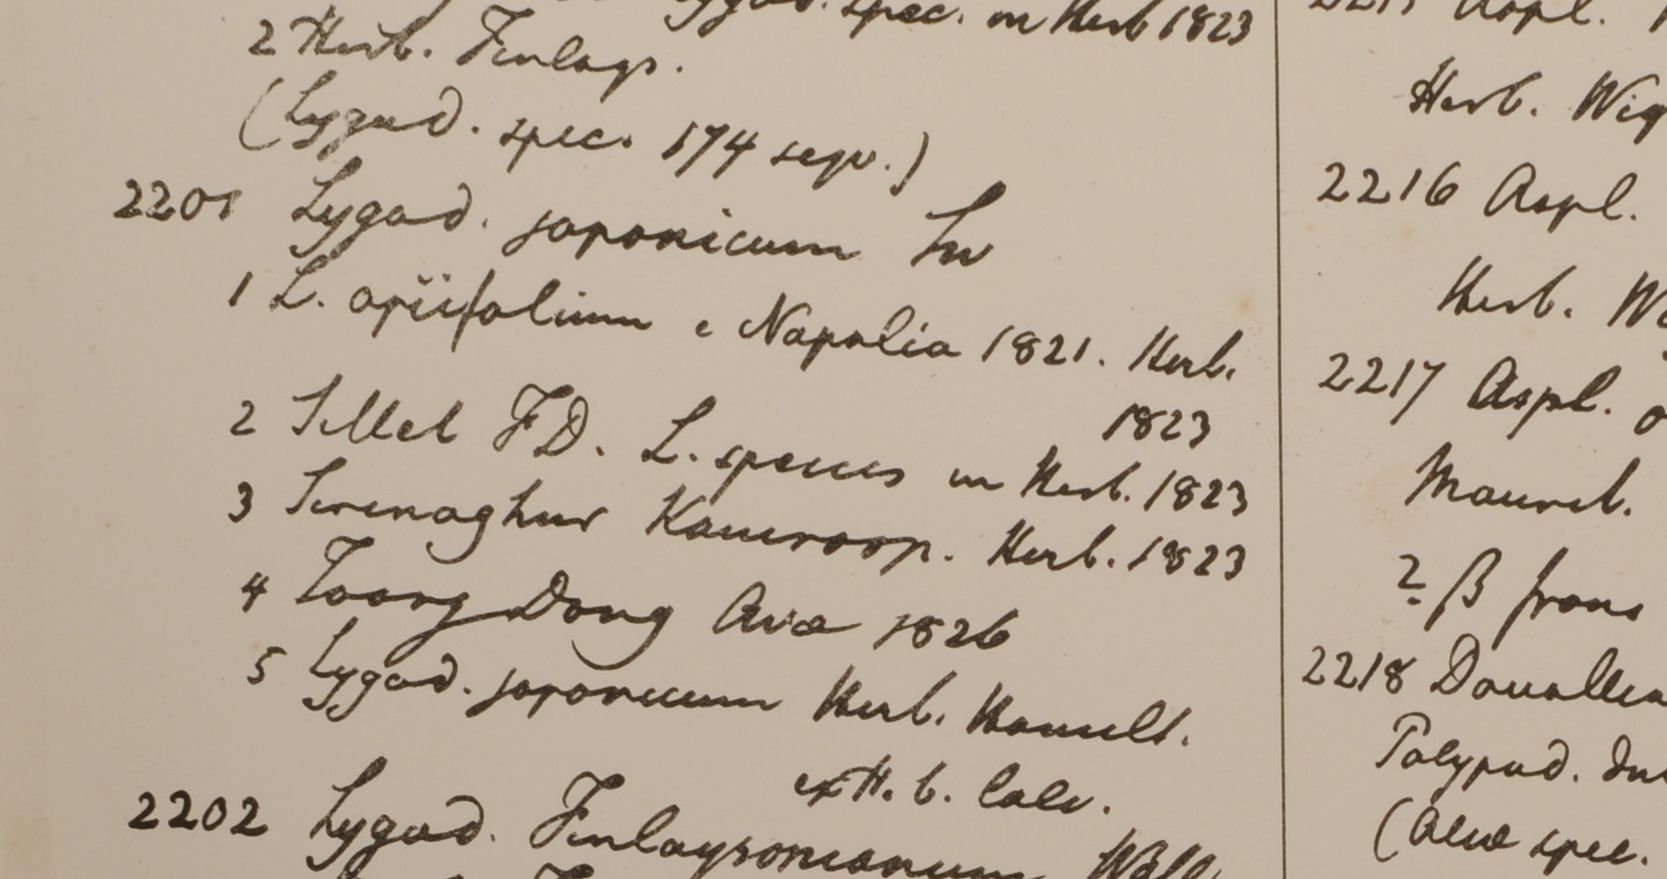 spec. in Herb 1823
2 Herb. Finlays.
(Lygod. spec. 174 seqv.)
2201 Lygod. japonicum Sw
1 L. apiifolium e Napalia 1821. Herb.
1823
2 Sillet FD. L. species in Herb. 1823
3 Sirinaghur Kamroop. Herb. 1823
4 Toong Dong Ava 1826
5 Lygod. japonicum Herb. Hamilt.
ex H. b. Calc.
2202 Lygod. Finlaysonianum Wall
Aspl.
Herb. Wig
2216 Aspl.
Herb. W
2217 Aspl.
Maurit.
? β frons
2218 Davallia
Polypod.
(alia spec.